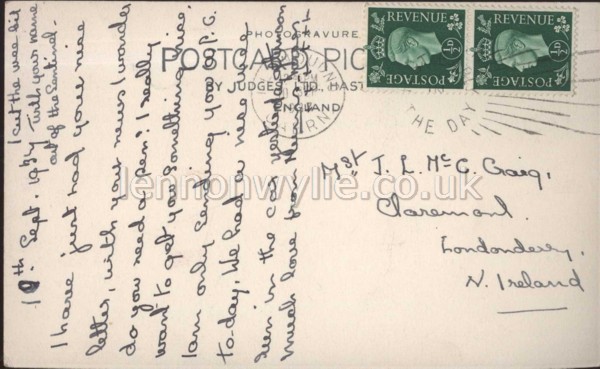 I cut the wee bit
with your name
out of the Sentinel.
10th Sept. 1937
I have just had your nice
letter, with your news I wonder
do you need a pen? I really
want to get you something nice.
I am only sending you a P.C.
to-day. We had a nice wee
run in the car yesterday
much love from
PHOTOGRAVURE
POSTCARD
BY JUDGES LTD, HAST
ENGLAND
REVENUE
½D
POSTAGE
REVENUE
½D
POSTAGE
THE DAY
Mst J. L. McC. Craig,
Claremont.
Londonderry,
N. Ireland
lennonwylie.co.uk